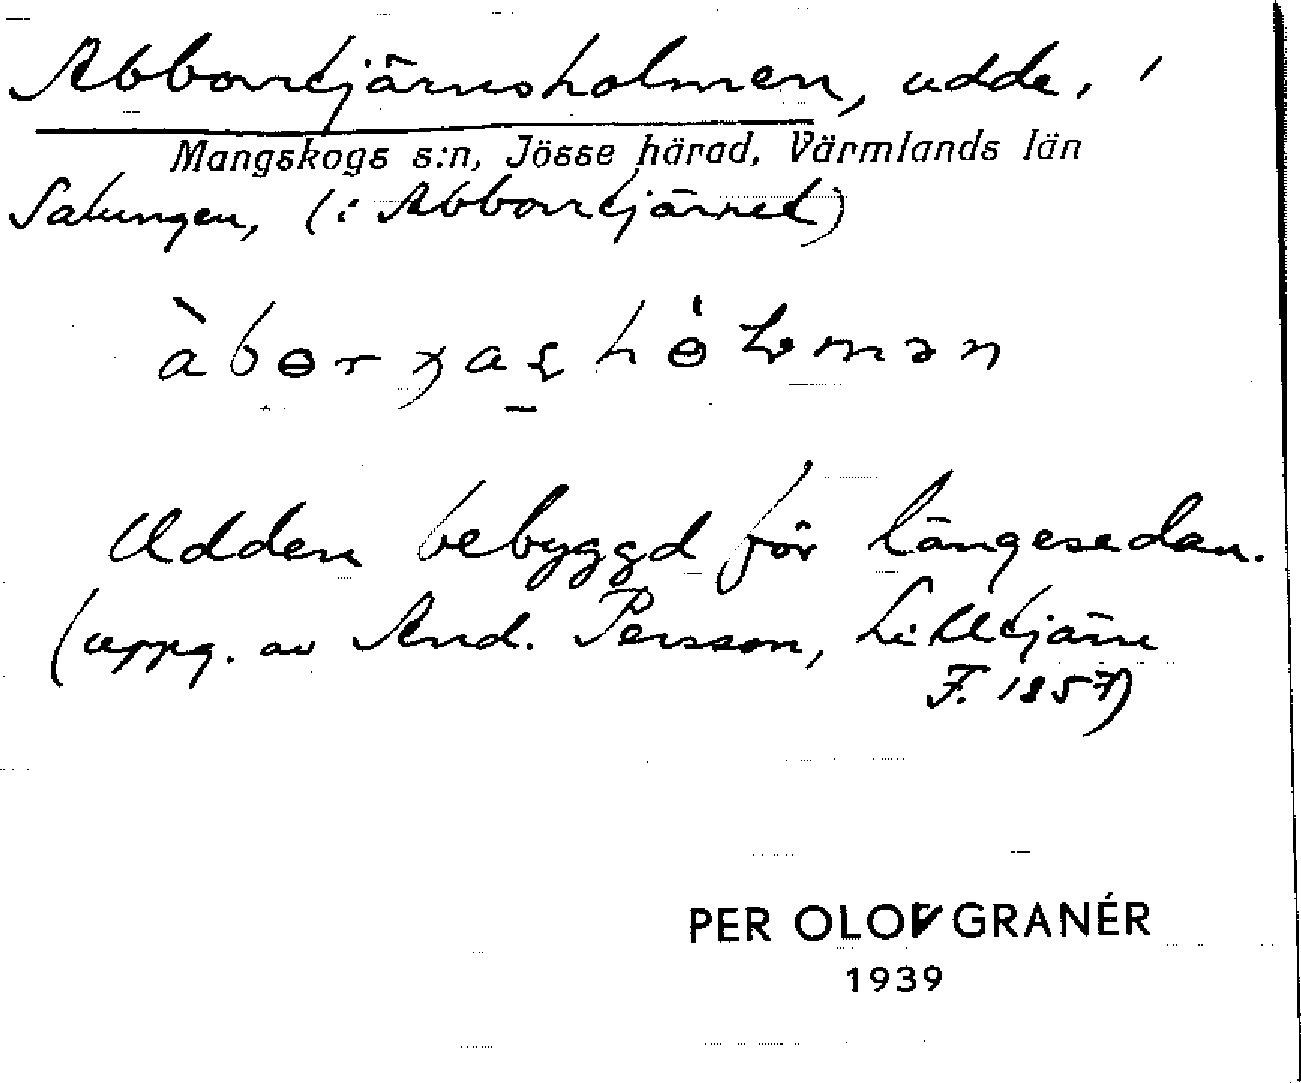 Abborrtjärnsholmen, udde.
Mangskogs s:n, Jösse härad, Värmlands län
Salungen, (: Abborrtjärnet)
Udden bebyggd för längesedan.
(uppg. av And. Persson, Lilltjärn
F. 1857)
PER OLOV GRANÉR
1939